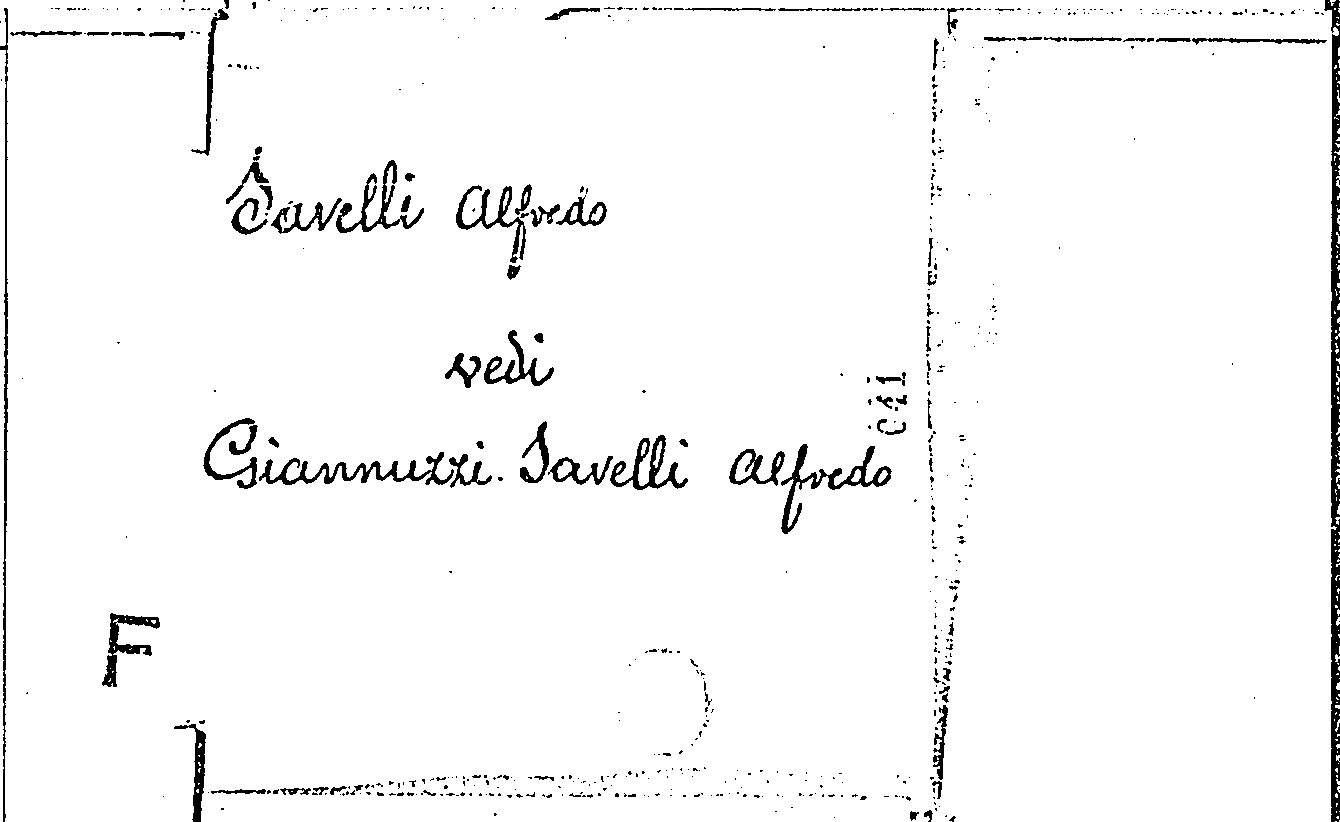 Savelli Alfredo
vedi
041
Giannuzzi. Savelli Alfredo
F